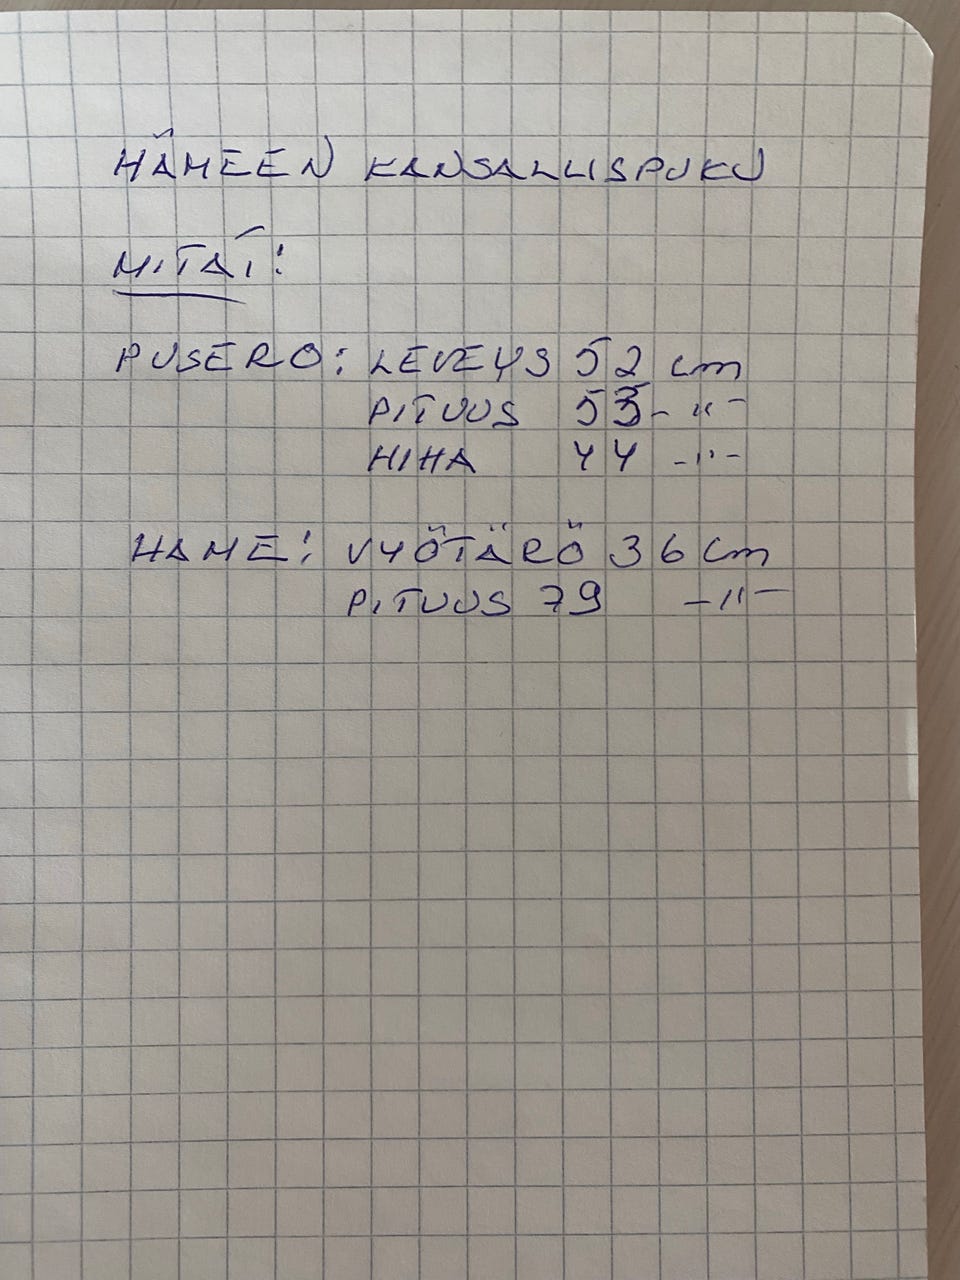 HÄMEEN KANSALLISPUKU
MITAT:
PUSERO: LEVEYS 52 cm
PITUUS 53 -"-
HIHA 44 -"-
HAME: VYÖTÄRÖ 36 cm
PITUUS 79 -"-